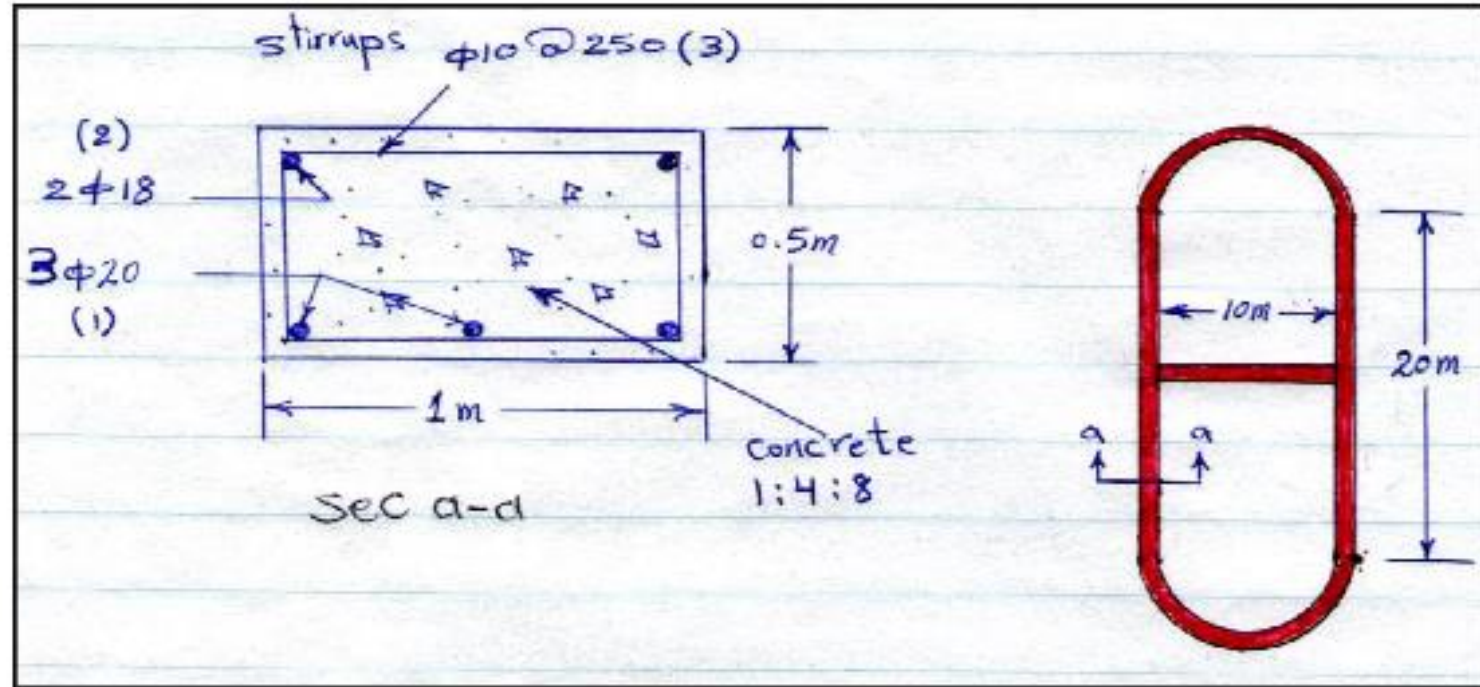 stirrups ϕ10@250(3)
(2)
2ϕ18
3ϕ20
(1)
0.5m
1m
concrete
1:4:8
Sec a-a
10m
20m
a a